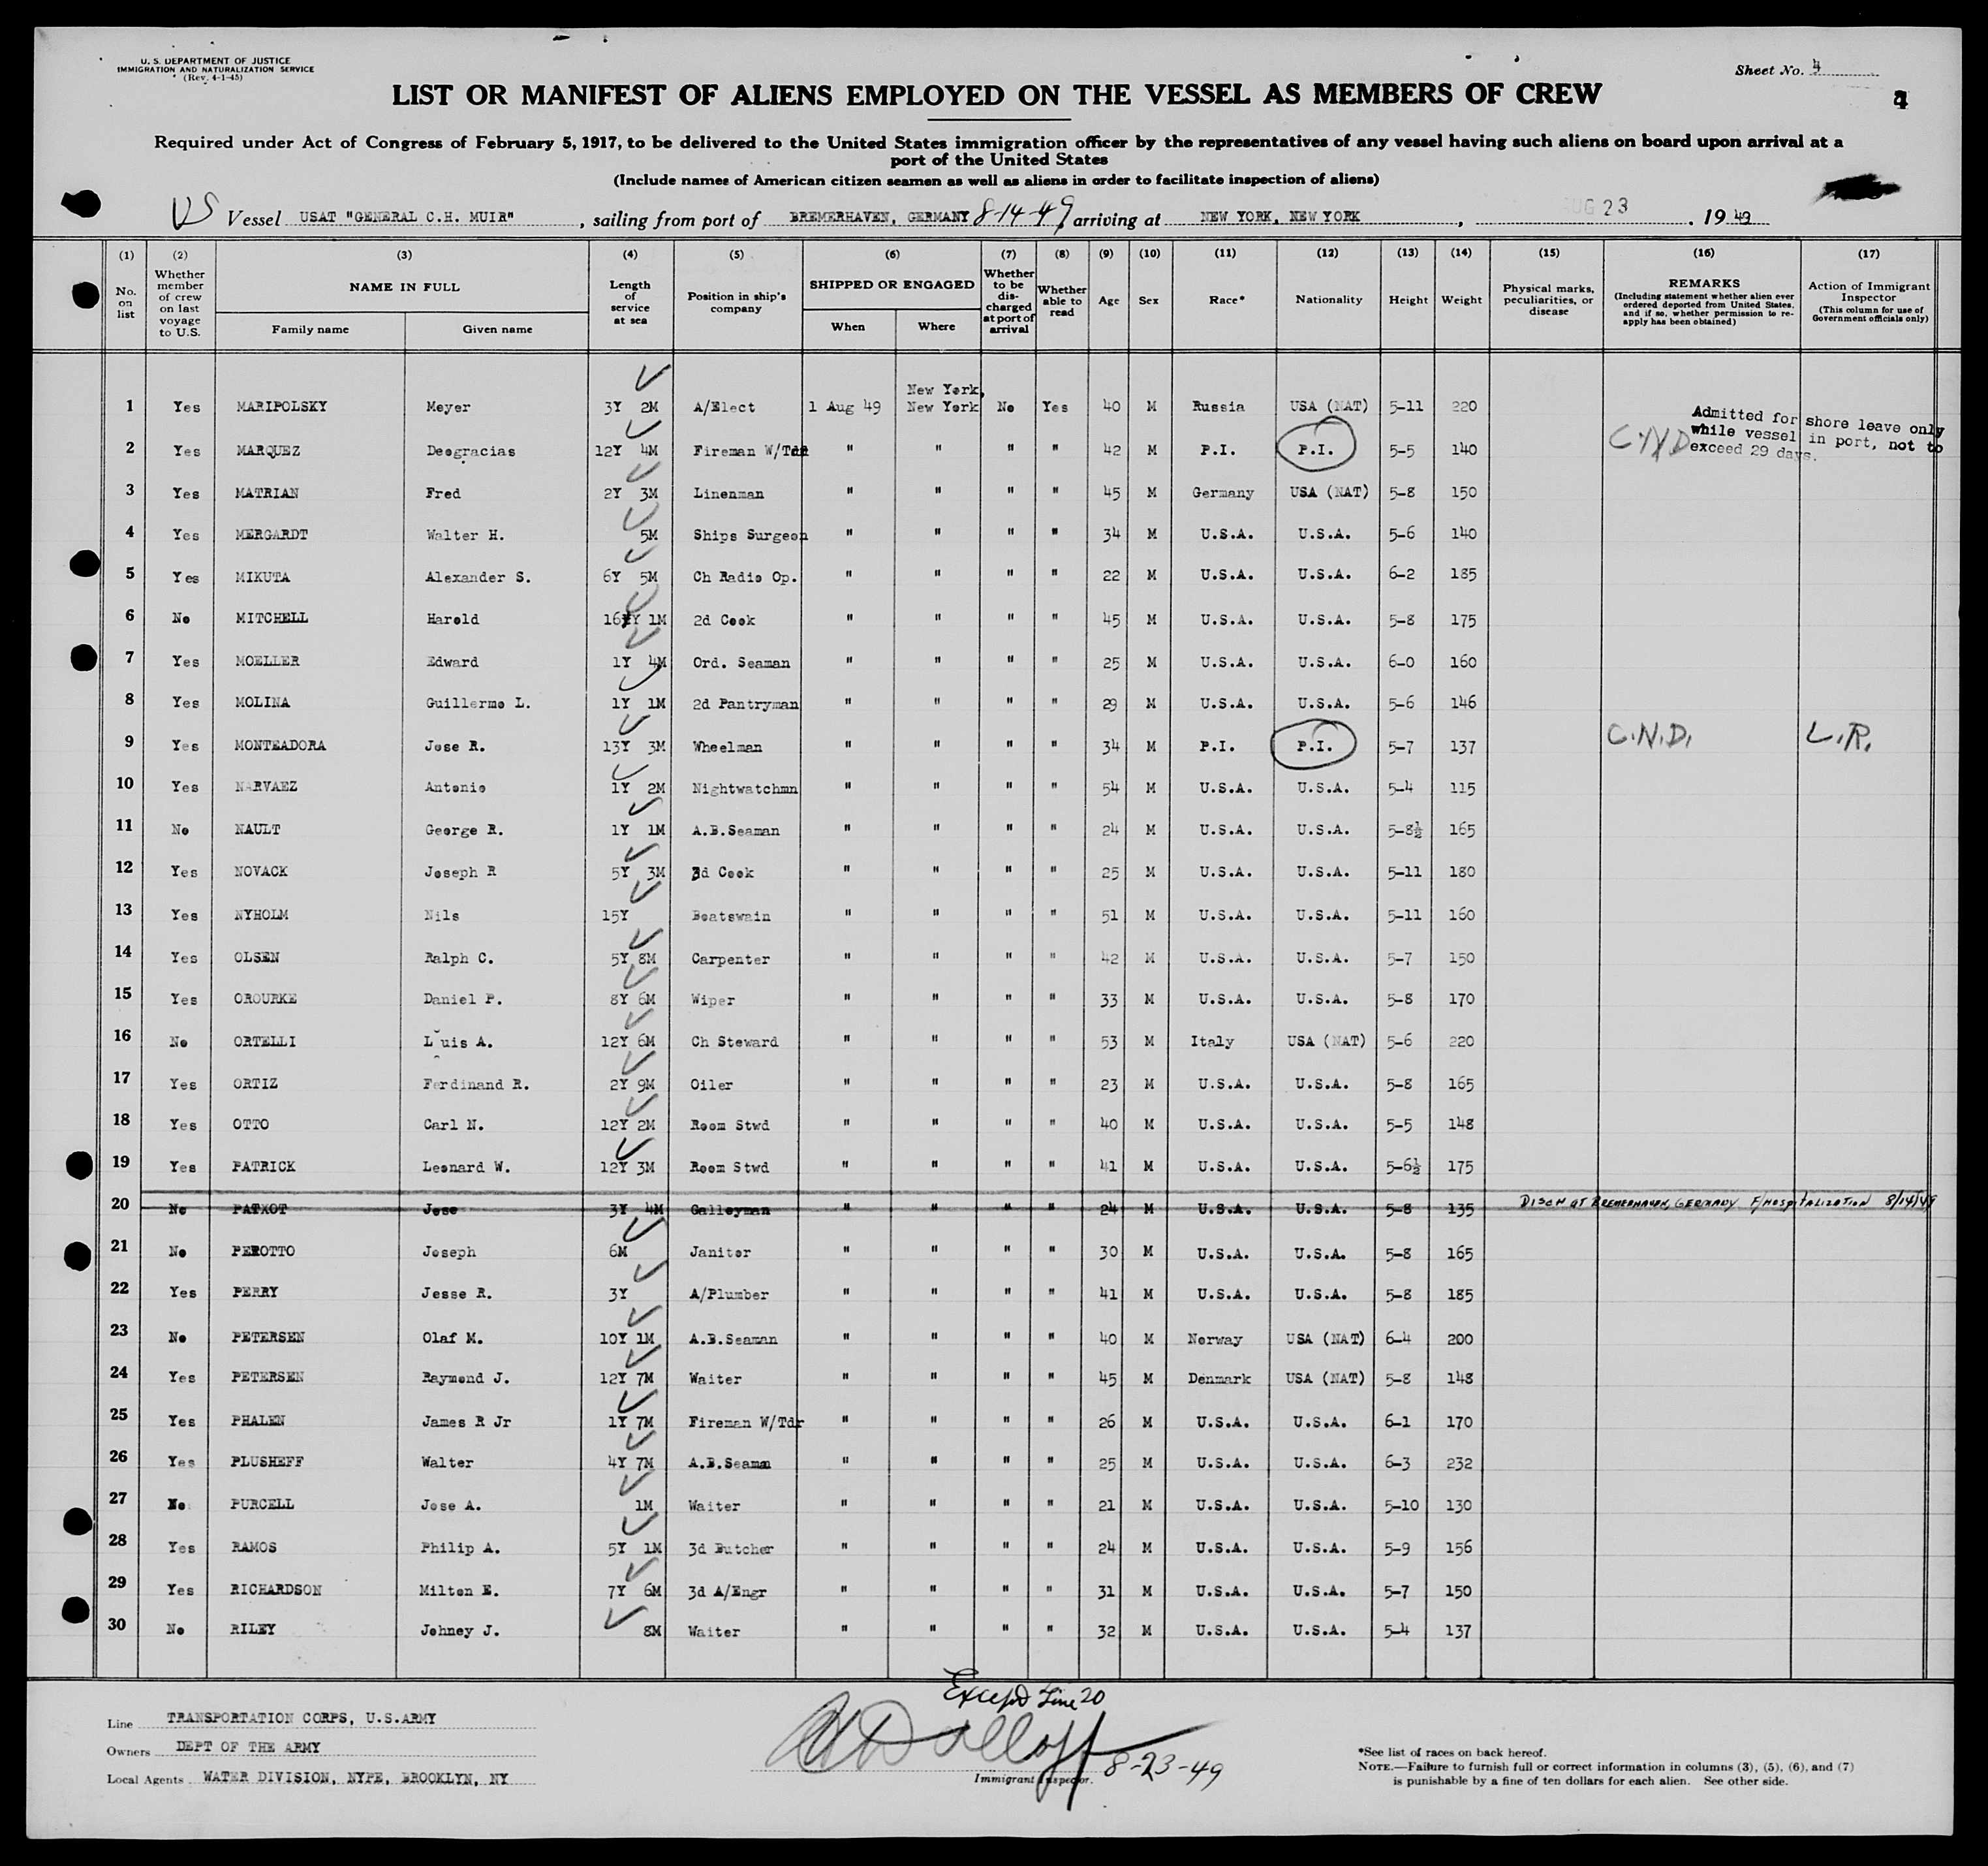 U. S. DEPARTMENT OF JUSTICE
IMMIGRATION AND NATURALIZATION SERVICE
(Rev. 4-1-45)
Sheet No. 4
4
LIST OR MANIFEST OF ALIENS EMPLOYED ON THE VESSEL AS MEMBERS OF CREW
Required under Act of Congress of February 5, 1917, to be delivered to the United States immigration officer by the representatives of any vessel having such aliens on board upon arrival at a
port of the United States
(Include names of American citizen seamen as well as aliens in order to facilitate inspection of aliens)
US Vessel USAT "GENERAL C.H. MUIR", sailing from port of BREMERHAVEN, GERMANY 8-14-49, arriving at NEW YORK, NEW YORK, AUG 23, 1949
(1) (2) (3) (4) (5) (6) (7) (8) (9) (10) (11) (12) (13) (14) (15) (16) (17)
No. on list
Whether member of crew on last voyage to U.S.
NAME IN FULL
Family name
Given name
Length of service at sea
Position in ship's company
SHIPPED OR ENGAGED
When
Where
Whether to be discharged at port of arrival
Whether able to read
Age
Sex
Race*
Nationality
Height
Weight
Physical marks, peculiarities, or disease
REMARKS
(Including statement whether alien ever ordered deported from United States, and if so, whether permission to re-apply has been obtained)
Action of Immigrant Inspector
(This column for use of Government officials only)
1 Yes MARIPOLSKY Meyer 3Y 2M A/Elect 1 Aug 49 New York, New York No Yes 40 M Russia USA (NAT) 5-11 220
2 Yes MARQUEZ Deogracias 12Y 4M Fireman W/Tdr " " " " 42 M P.I. P.I. 5-5 140 C.N.D. Admitted for shore leave only while vessel in port, not to exceed 29 days.
3 Yes MATRIAN Fred 2Y 3M Linenman " " " " 45 M Germany USA (NAT) 5-8 150
4 Yes MERGARDT Walter H. 5M Ships Surgeon " " " " 34 M U.S.A. U.S.A. 5-6 140
5 Yes MIKUTA Alexander S. 6Y 5M Ch Radio Op. " " " " 22 M U.S.A. U.S.A. 6-2 185
6 No MITCHELL Harold 16Y 1M 2d Cook " " " " 45 M U.S.A. U.S.A. 5-8 175
7 Yes MOELLER Edward 1Y 4M Ord. Seaman " " " " 25 M U.S.A. U.S.A. 6-0 160
8 Yes MOLINA Guillermo L. 1Y 1M 2d Pantryman " " " " 29 M U.S.A. U.S.A. 5-6 146
9 Yes MONTEADORA Jose R. 13Y 3M Wheelman " " " " 34 M P.I. P.I. 5-7 137 C.N.D. L.R.
10 Yes NARVAEZ Antonio 1Y 2M Nightwatchmn " " " " 54 M U.S.A. U.S.A. 5-4 115
11 No NAULT George R. 1Y 1M A.B.Seaman " " " " 24 M U.S.A. U.S.A. 5-8½ 165
12 Yes NOVACK Joseph R 5Y 3M 3d Cook " " " " 25 M U.S.A. U.S.A. 5-11 180
13 Yes NYHOLM Nils 15Y Boatswain " " " " 51 M U.S.A. U.S.A. 5-11 160
14 Yes OLSEN Ralph C. 5Y 8M Carpenter " " " " 42 M U.S.A. U.S.A. 5-7 150
15 Yes OROURKE Daniel P. 8Y 6M Wiper " " " " 33 M U.S.A. U.S.A. 5-8 170
16 No ORTELLI Luis A. 12Y 6M Ch Steward " " " " 53 M Italy USA (NAT) 5-6 220
17 Yes ORTIZ Ferdinand R. 2Y 9M Oiler " " " " 23 M U.S.A. U.S.A. 5-8 165
18 Yes OTTO Carl N. 12Y 2M Room Stwd " " " " 40 M U.S.A. U.S.A. 5-5 148
19 Yes PATRICK Leonard W. 12Y 3M Room Stwd " " " " 41 M U.S.A. U.S.A. 5-6½ 175
20 No PATXOT Jose 3Y 4M Galleyman " " " " 24 M U.S.A. U.S.A. 5-8 135 DISCH AT BREMERHAVEN, GERMANY F/HOSPITALIZATION 8/14/49
21 No PEROTTO Joseph 6M Janitor " " " " 30 M U.S.A. U.S.A. 5-8 165
22 Yes PERRY Jesse R. 3Y A/Plumber " " " " 41 M U.S.A. U.S.A. 5-8 185
23 No PETERSEN Olaf M. 10Y 1M A.B.Seaman " " " " 40 M Norway USA (NAT) 6-4 200
24 Yes PETERSEN Raymond J. 12Y 7M Waiter " " " " 45 M Denmark USA (NAT) 5-8 148
25 Yes PHALEN James R Jr 1Y 7M Fireman W/Tdr " " " " 26 M U.S.A. U.S.A. 6-1 170
26 Yes PLUSHEFF Walter 4Y 7M A.B.Seaman " " " " 25 M U.S.A. U.S.A. 6-3 232
27 No PURCELL Jose A. 1M Waiter " " " " 21 M U.S.A. U.S.A. 5-10 130
28 Yes RAMOS Philip A. 5Y 1M 3d Butcher " " " " 24 M U.S.A. U.S.A. 5-9 156
29 Yes RICHARDSON Milton E. 7Y 6M 3d A/Engr " " " " 31 M U.S.A. U.S.A. 5-7 150
30 No RILEY Johney J. 8M Waiter " " " " 32 M U.S.A. U.S.A. 5-4 137
Except Line 20
Line TRANSPORTATION CORPS, U.S.ARMY
Owners DEPT OF THE ARMY
Local Agents WATER DIVISION, NYPE, BROOKLYN, NY
8-23-49
Immigrant Inspector.
*See list of races on back hereof.
NOTE.—Failure to furnish full or correct information in columns (3), (5), (6), and (7)
is punishable by a fine of ten dollars for each alien. See other side.